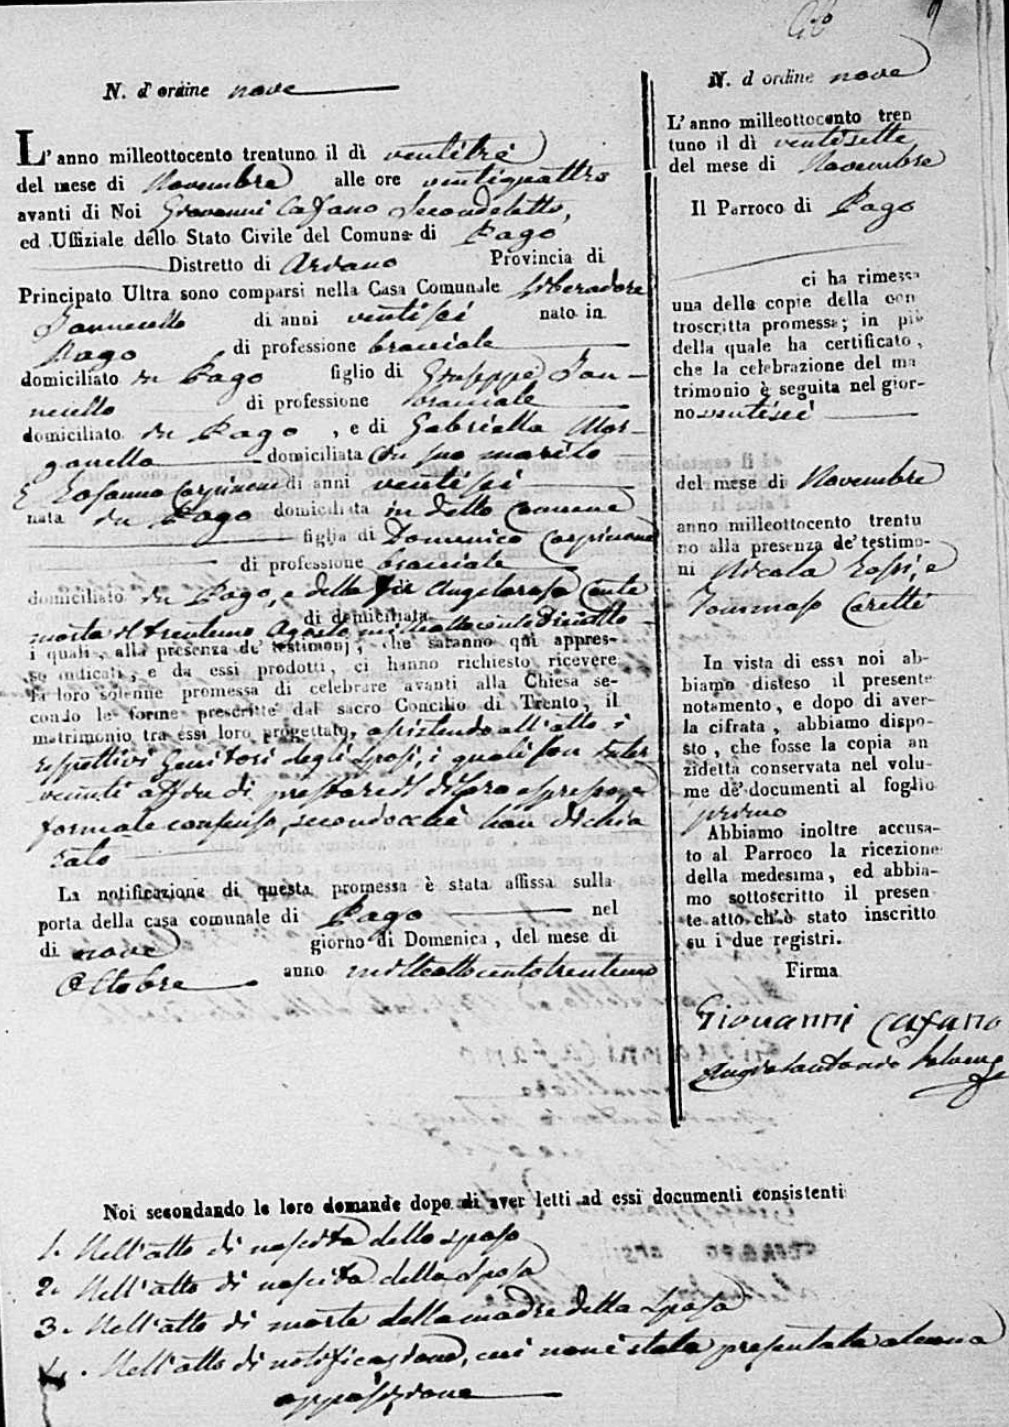 N. d'ordine nove
L'anno milleottocento trentuno il dì ventitrè
del mese di Novembre alle ore ventiquattro
avanti di Noi Giovanni Cafano Secondeletto,
ed Uffiziale dello Stato Civile del Comune di Pago
Distretto di Provincia di
Principato Ultra sono comparsi nella Casa Comunale Liberadore
Iannucello di anni ventisei nato in
Pago di professione bracciale
domiciliato in Pago figlio di Giuseppe Ian-
nucello di professione bracciale
domiciliato in Pago, e di Gabriella Mor-
ganella domiciliata con suo marito
E Rosanna Carpinone di anni ventisei
nata in Pago domiciliata in detto Comune
figlia di Domenico Carpinone
di professione bracciale
domiciliato in Pago, e della fu Angelarosa Conte
di domiciliata
morta il trentuno Agosto milleottocento
i quali, alla presenza de' testimonj, che saranno qui appres-
so indicati, e da essi prodotti, ci hanno richiesto ricevere
la loro solenne promessa di celebrare avanti alla Chiesa se-
condo le forme prescritte dal sacro Concilio di Trento, il
matrimonio tra essi loro progettato, assistendo all'atto i
rispettivi Genitori degli Sposi, i quali son inter-
venuti affin di prestare il di loro espresso, e
formale consenso, secondocchè han dichia
rato
La notificazione di questa promessa è stata affissa sulla
porta della casa comunale di Pago nel
di nove giorno di Domenica, del mese di
Ottobre anno milleottocentotrentuno
N. d'ordine nove
L'anno milleottocento tren
tuno il dì ventisette
del mese di Novembre
Il Parroco di Pago
ci ha rimessa
una delle copie della con
troscritta promessa; in piè
della quale ha certificato,
che la celebrazione del ma
trimonio è seguita nel gior-
no ventisei
del mese di Novembre
anno milleottocento trentu
no alla presenza de' testimo-
ni Nicola Rossi, e
Tommaso Caretti
In vista di essa noi ab-
biamo disteso il presente
notamento, e dopo di aver-
la cifrata, abbiamo dispo-
sto, che fosse la copia an
zidetta conservata nel volu-
me de' documenti al foglio
primo
Abbiamo inoltre accusa-
to al Parroco la ricezione
della medesima, ed abbia-
mo sottoscritto il presen
te atto ch'è stato inscritto
su i due registri.
Firma
Giovanni Cafano
Noi secondando le loro domande dopo di aver letti ad essi documenti consistenti
1. Nell'atto di nascita dello sposo
2. Nell'atto di nascita della Sposa
3. Nell'atto di morte della madre della Sposa
4. Nell'atto di notificazione, cui non è stata presentata alcuna
opposizione